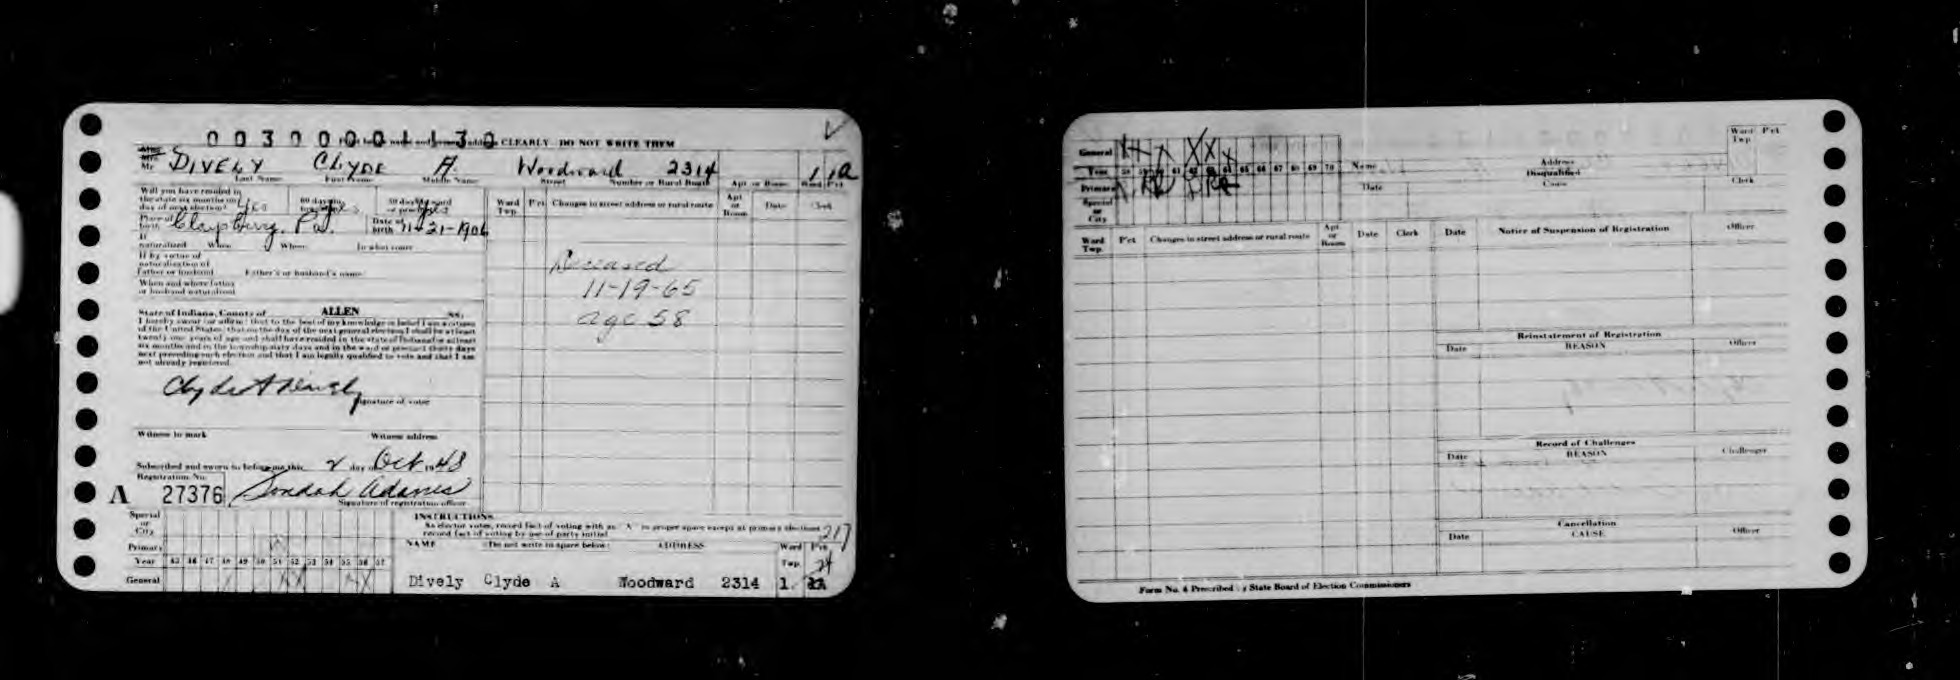 00300001130
CLEARLY DO NOT WRITE THEM
Mr. DIVELY CLYDE A. Woodward 2314
Last Name First Name Middle Name Street Number or Rural Route Apt or Room Ward Pct
Will you have resided in
the state six months on
day of next election? yes yes yes
Ward Twp. P'ct Changes in street address or rural route Apt or Room Date Clerk
Place of birth Claysburg, Pa. Date of birth 11-21-1906
If naturalized When Where In what court
If by virtue of
naturalization of
father or husband Father's or husband's name
When and where father
or husband naturalized
Deceased
11-19-65
age 58
State of Indiana, County of ALLEN SS:
I hereby swear (or affirm) that to the best of my knowledge or belief I am a citizen
of the United States; that on the day of the next general election I shall be at least
twenty one years of age and shall have resided in the state of Indiana for at least
six months and in the township sixty days and in the ward or precinct thirty days
next preceding such election and that I am legally qualified to vote and that I am
not already registered.
Clyde A Dively
Signature of voter
Witness to mark Witness address
Subscribed and sworn to before me this 2 day of Oct 1948
Registration No.
A 27376
Signature of registration officer
Special
or
City
Primary
Year 45 46 47 48 49 50 51 52 53 54 55 56 57
General
INSTRUCTIONS
As elector votes, record fact of voting with an "X" in proper space except at primary elections
record fact of voting by use of party initial
217
NAME (Do not write in space below) ADDRESS Ward Twp. P'ct
24
Dively Clyde A Woodward 2314 1
General
Year 58 59 60 61 62 63 64 65 66 67 68 69 70
Primary
Special
or
City
Name Address Ward Twp P'ct
Disqualified
Date Cause Clerk
Ward Twp. P'ct Changes in street address or rural route Apt or Room Date Clerk
Date Notice of Suspension of Registration Officer
Reinstatement of Registration
Date REASON Officer
Record of Challenges
Date REASON Challenger
Cancellation
Date CAUSE Officer
Form No. 4 Prescribed by State Board of Election Commissioners